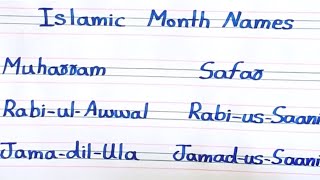 Islamic Month Names
Muharram Safar
Rabi-ul-Awwal Rabi-us-Saani
Jama-dil-Ula Jamad-us-Saani